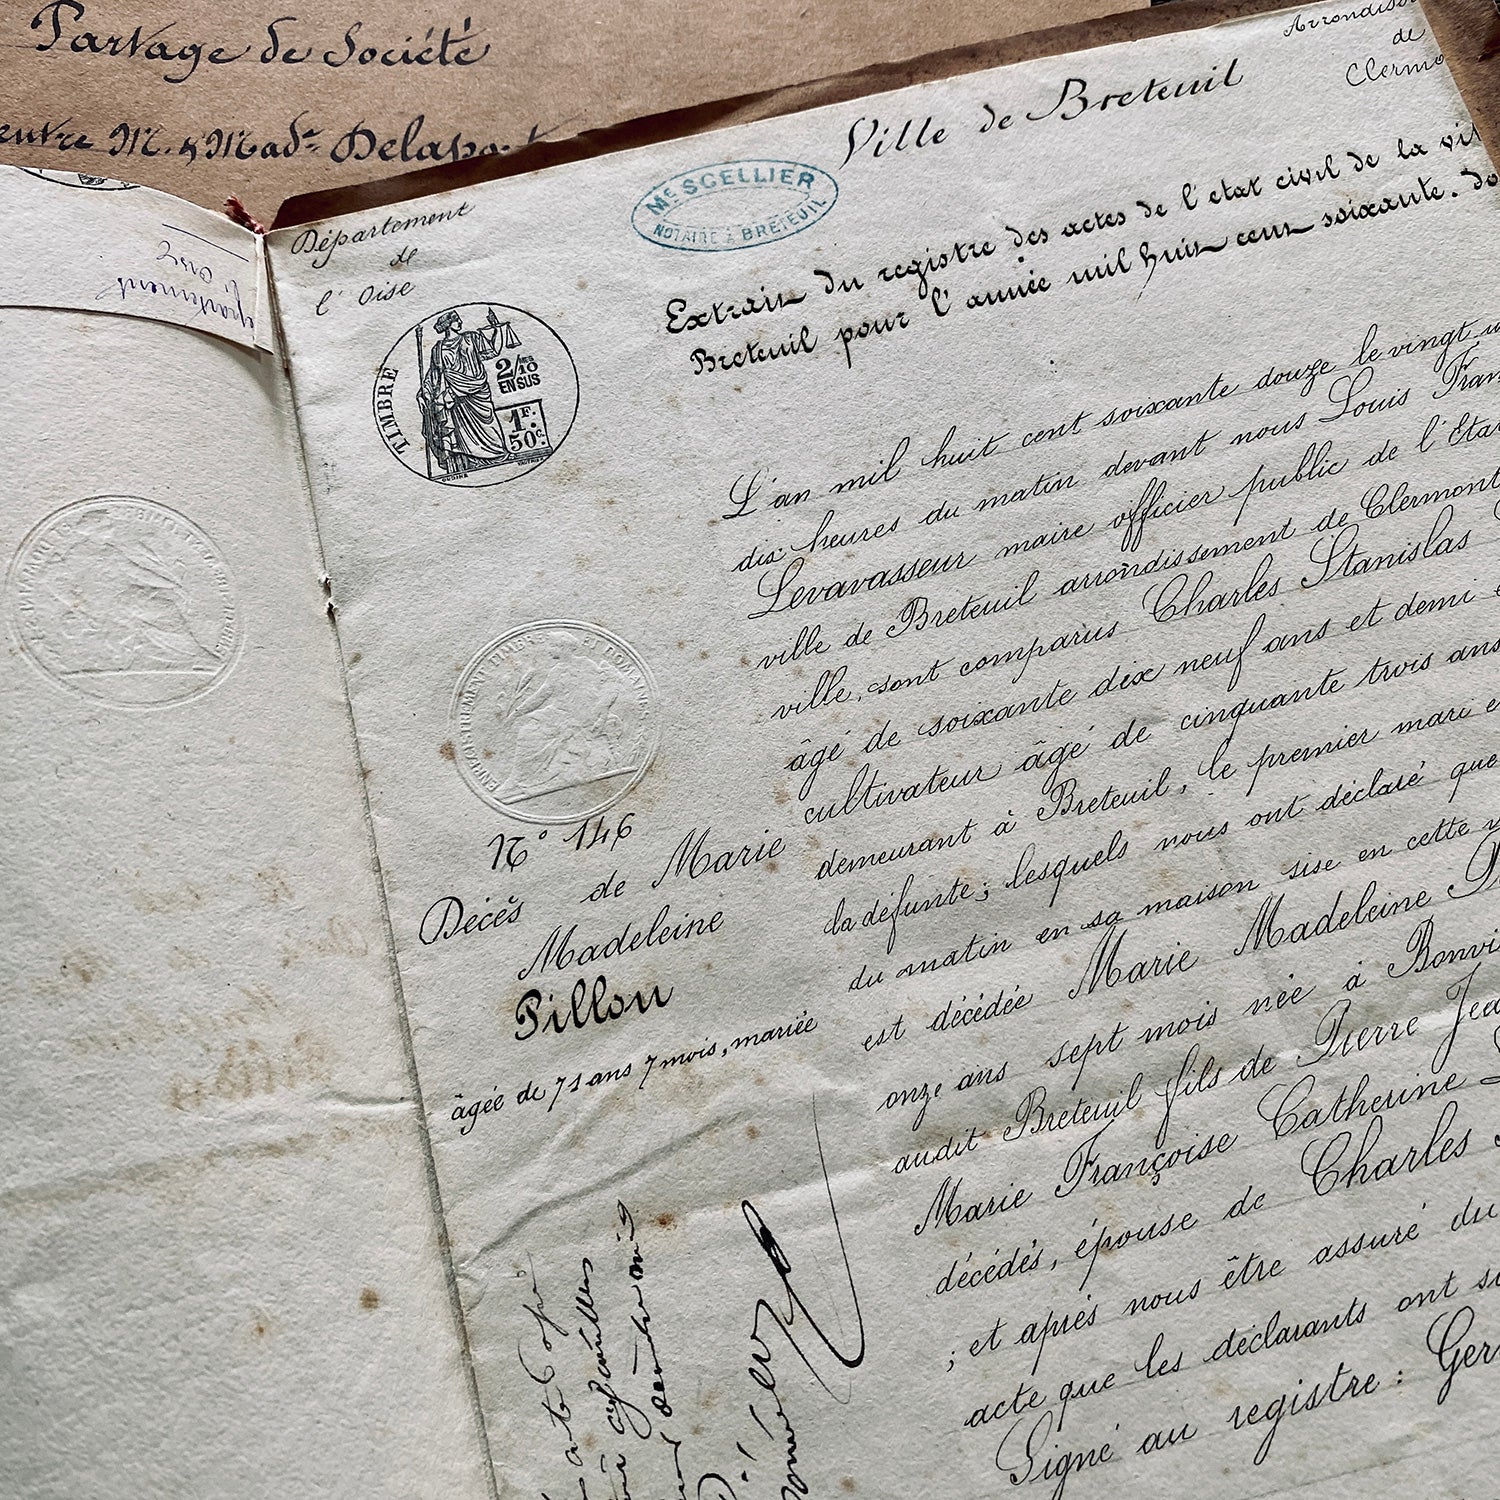 Partage de Société
entre M. & Mad.e Delaport
Arrondiss
de
Clermo
Ville de Breteuil
Me SCELLIER
NOTAIRE à BRETEUIL
Département
de
l'Oise
partement
l'Oise
TIMBRE
2/10 EN SUS
1F. 50c.
Extrait du registre des actes de l'etat civil de la vil
Breteuil pour l'année mil huit cent soixante. do
L'an mil huit cent soixante douze le vingt
dix heures du matin devant nous Louis Fran
Levavasseur maire officier public de l'Eta
ville de Breteuil arrondissement de Clermont
ville, sont comparus Charles Stanislas
âgé de soixante dix neuf ans et demi
cultivateur âgé de cinquante trois ans
demeurant à Breteuil, le premier mari e
la défunte; lesquels nous ont déclaré que
du matin en sa maison sise en cette v
est décédée Marie Madeleine
onze ans sept mois née à Bonvi
audit Breteuil fils de Pierre Jea
Marie Françoise Catherine
décédés, épouse de Charles
; et après nous être assuré du
acte que les déclarants ont si
Signé au registre: Ger
ENREGISTREMENT TIMBRE ET DOMAINES
N° 146
Décès de Marie
Madeleine
Pillon
âgée de 71 ans 7 mois, mariée